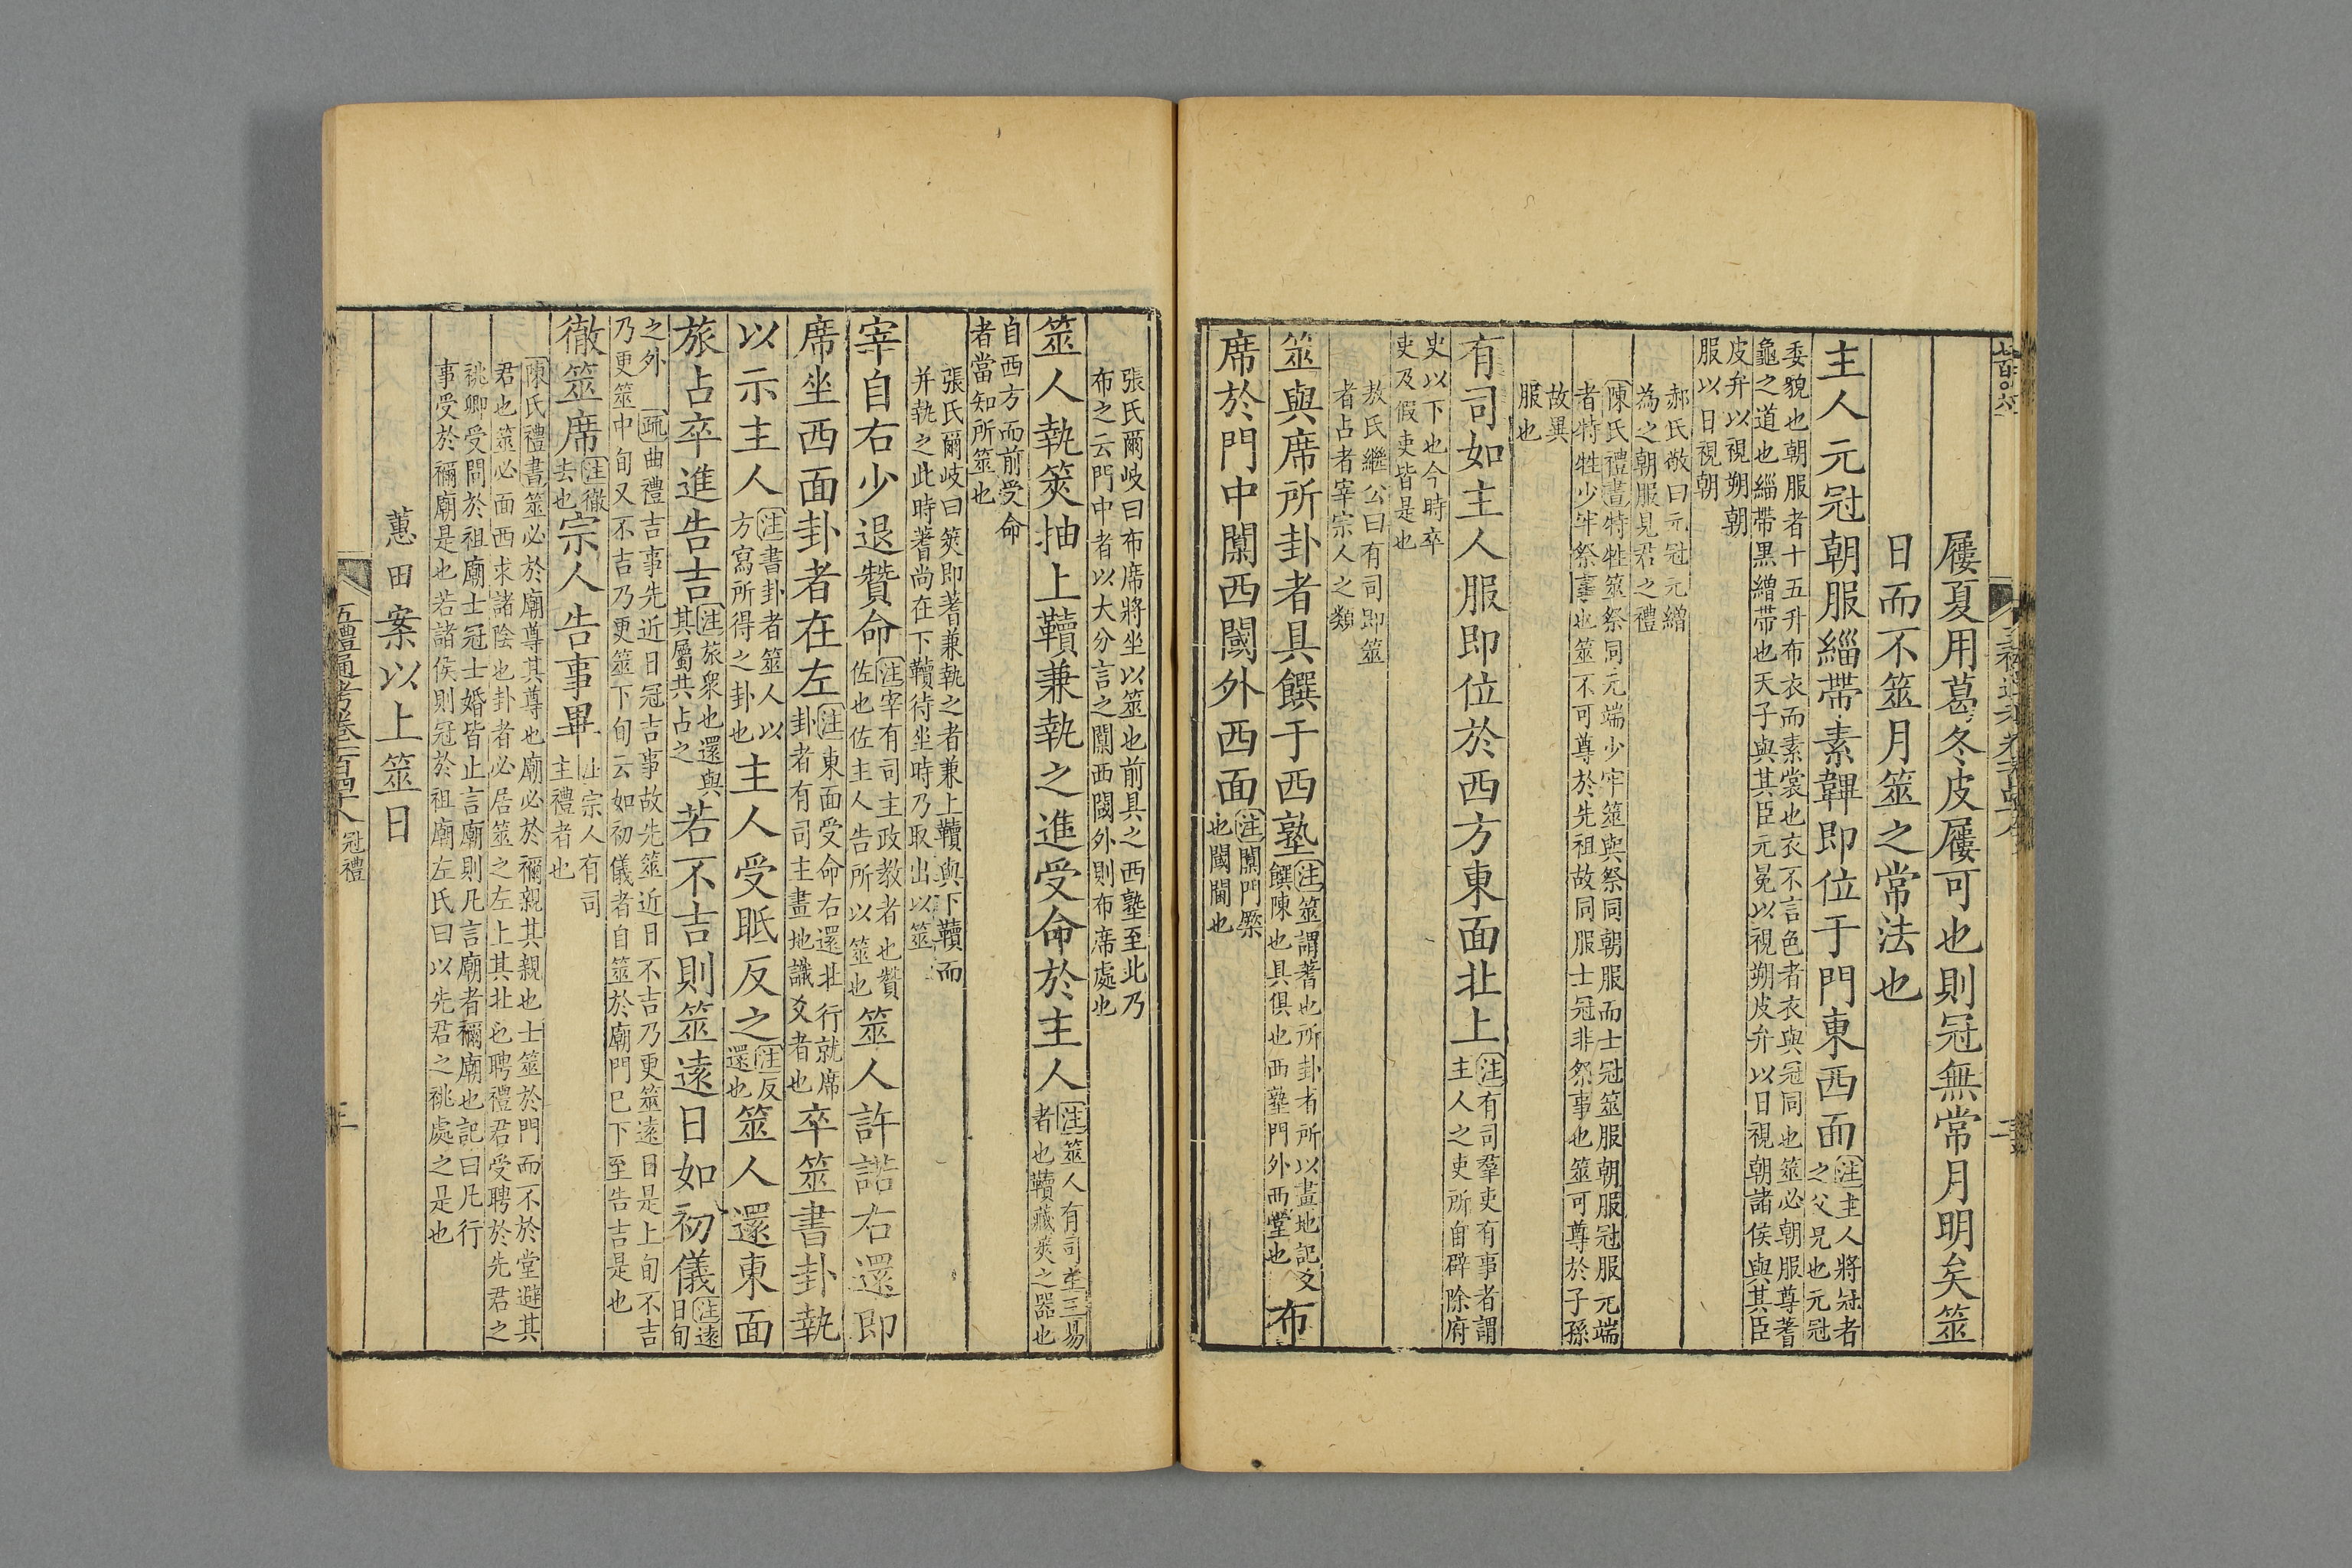 屨夏用葛冬皮屨可也則冠無常月明矣筮
日而不筮月筮之常法也
主人元冠朝服緇帶素韠即位于門東西面注主人將冠者之父兄也元冠
委貌也朝服者十五升布衣而素裳也衣不言色者衣與冠同也筮必朝服尊蓍
龜之道也緇帶黑繒帶也天子與其臣元冕以視朔皮弁以日視朝諸侯與其臣
皮弁以視朔朝
服以日視朝
郝氏敬曰元冠元繒
為之朝服見君之禮
陳氏禮書特牲筮祭同元端少牢筮與祭同朝服而士冠筮服朝服冠服元端
者特牲少牢祭事也筮不可尊於先祖故同服士冠非祭事也筮可尊於子孫
故異
服也
有司如主人服即位於西方東面北上注有司羣吏有事者謂主人之吏所自辟除府
史以下也今時卒
吏及假吏皆是也
敖氏繼公曰有司即筮
者占者宰宗人之類
筮與席所卦者具饌于西塾注筮謂蓍也所卦者所以畫地記爻饌陳也具俱也西塾門外西堂也布
席於門中闑西閾外西面注闑門橜也閾閫也
張氏爾岐曰布席將坐以筮也前具之西塾至此乃
布之云門中者以大分言之闑西閾外則布席處也
筮人執筴抽上韇兼執之進受命於主人注筮人有司主三易者也韇藏筴之器也
自西方而前受命
者當知所筮也
張氏爾岐曰筴即蓍兼執之者兼上韇與下韇而
并執之此時蓍尚在下韇待坐時乃取出以筮
宰自右少退贊命注宰有司主政教者也贊佐也佐主人告所以筮也筮人許諾右還即
席坐西面卦者在左注東面受命右還北行就席卦者有司主畫地識爻者也卒筮書卦執
以示主人注書卦者筮人以方寫所得之卦也主人受眡反之注反還也筮人還東面
旅占卒進告吉注旅衆也還與其屬共占之若不吉則筮遠日如初儀注遠日旬
之外 疏曲禮吉事先近日冠吉事故先筮近日不吉乃更筮遠日是上旬不吉
乃更筮中旬又不吉乃更筮下旬云如初儀者自筮於廟門已下至告吉是也
徹筮席注徹去也宗人告事畢注宗人有司主禮者也
陳氏禮書筮必於廟尊其尊也廟必於禰親其親也士筮於門而不於堂避其
君也筮必面西求諸陰也卦者必居筮之左上其北也聘禮君受聘於先君之
祧卿受問於祖廟士冠士婚皆止言廟則凡言廟者禰廟也記曰凡行
事受於禰廟是也若諸侯則冠於祖廟左氏曰以先君之祧處之是也
蕙田案以上筮日
五禮通考卷一百四十八 冠禮 三